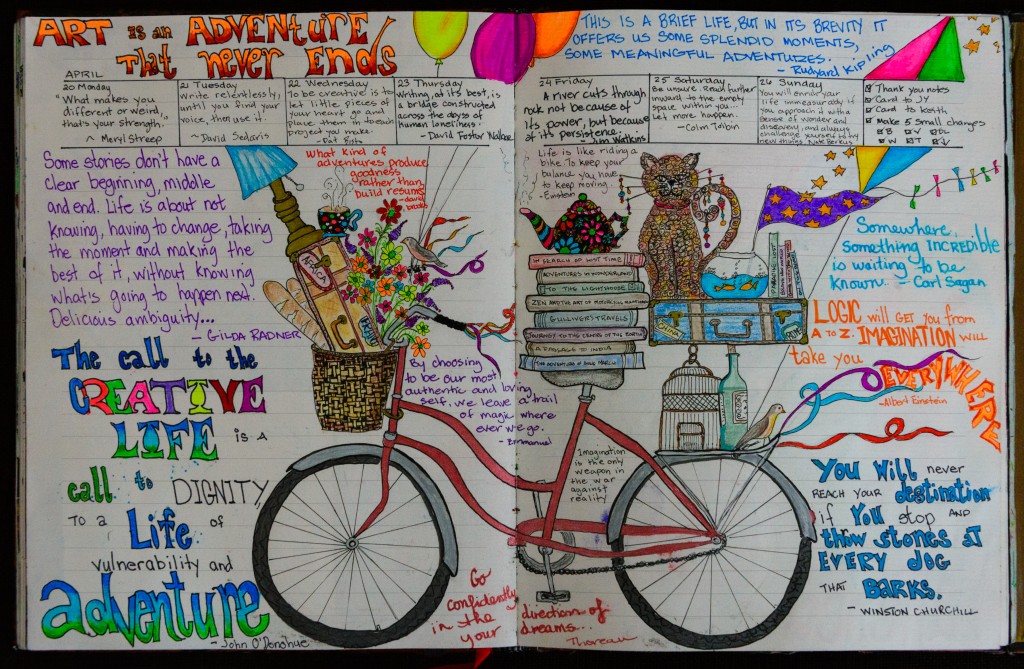 ART is an ADVENTURE
That never ENDS
APRIL
20 Monday
"What makes you
different or weird,
that's your strength."
- Meryl Streep
21 Tuesday
Write relentlessly,
until you find your
voice, then use it.
- David Sedaris
22 Wednesday
To be creative is to
let little pieces of
your heart go and
place them in each
project you make.
23 Thursday
Writing, at its best, is
a bridge constructed
across the abyss of
human loneliness.
- David Foster Wallace
Some stories don't have a
clear beginning, middle
and end. Life is about not
knowing, having to change, taking
the moment and making the
best of it, without knowing
what's going to happen next.
Delicious ambiguity...
- GILDA RADNER
What kind of
adventures produce
goodness
rather than
build resumes
- david
brooks
AFRICA
The call to the
CREATIVE
LIFE is a
call to DIGNITY
TO a LIFE of
vulnerability and
adventure
- John O'Donohue
By choosing
to be our most
authentic and loving
self, we leave a trail
of magic where
ever we go.
- Emmanuel
Go
confidently
in the
your
directions of
dreams...
Thoreau
THIS IS A BRIEF LIFE, BUT IN ITS BREVITY IT
OFFERS US SOME SPLENDID MOMENTS,
SOME MEANINGFUL ADVENTURES.
- Rudyard Kipling
24 Friday
A river cuts through
rock not because of
its power, but because
of its persistence.
- Jim Watkins
25 Saturday
Be unsure. Reach further
inward to the empty
space within you...
Let more happen.
- Colm Toibin
26 Sunday
You will enrich your
life immeasurably if
you approach it with a
sense of wonder and
discovery, and always
challenge yourself to try
new things. Nate Berkus
Thank you notes
Card to JY
Card to Keath
Make 5 small changes
B V DL
W T
Life is like riding a
bike. To keep your
balance you have
to keep moving.
- Einstein
IN SEARCH OF LOST TIME
ADVENTURES IN WONDERLAND
TO THE LIGHTHOUSE
ZEN AND THE ART OF MOTORCYCLE MAINTENANCE
GULLIVER'S TRAVELS
JOURNEY TO THE CENTER OF THE EARTH
A PASSAGE TO INDIA
THE ADVENTURES OF
Somewhere,
something INCREDIBLE
is waiting to be
known. - Carl Sagan
LOGIC will get you from
A to Z. IMAGINATION will
take you EVERYWHERE
- Albert Einstein
Imagination
is the only
weapon in
the war
against
reality
YOU Will never
REACH YOUR destination
if YOU stop AND
throw stones AT
EVERY DOG
THAT BARKS.
- WINSTON CHURCHILL